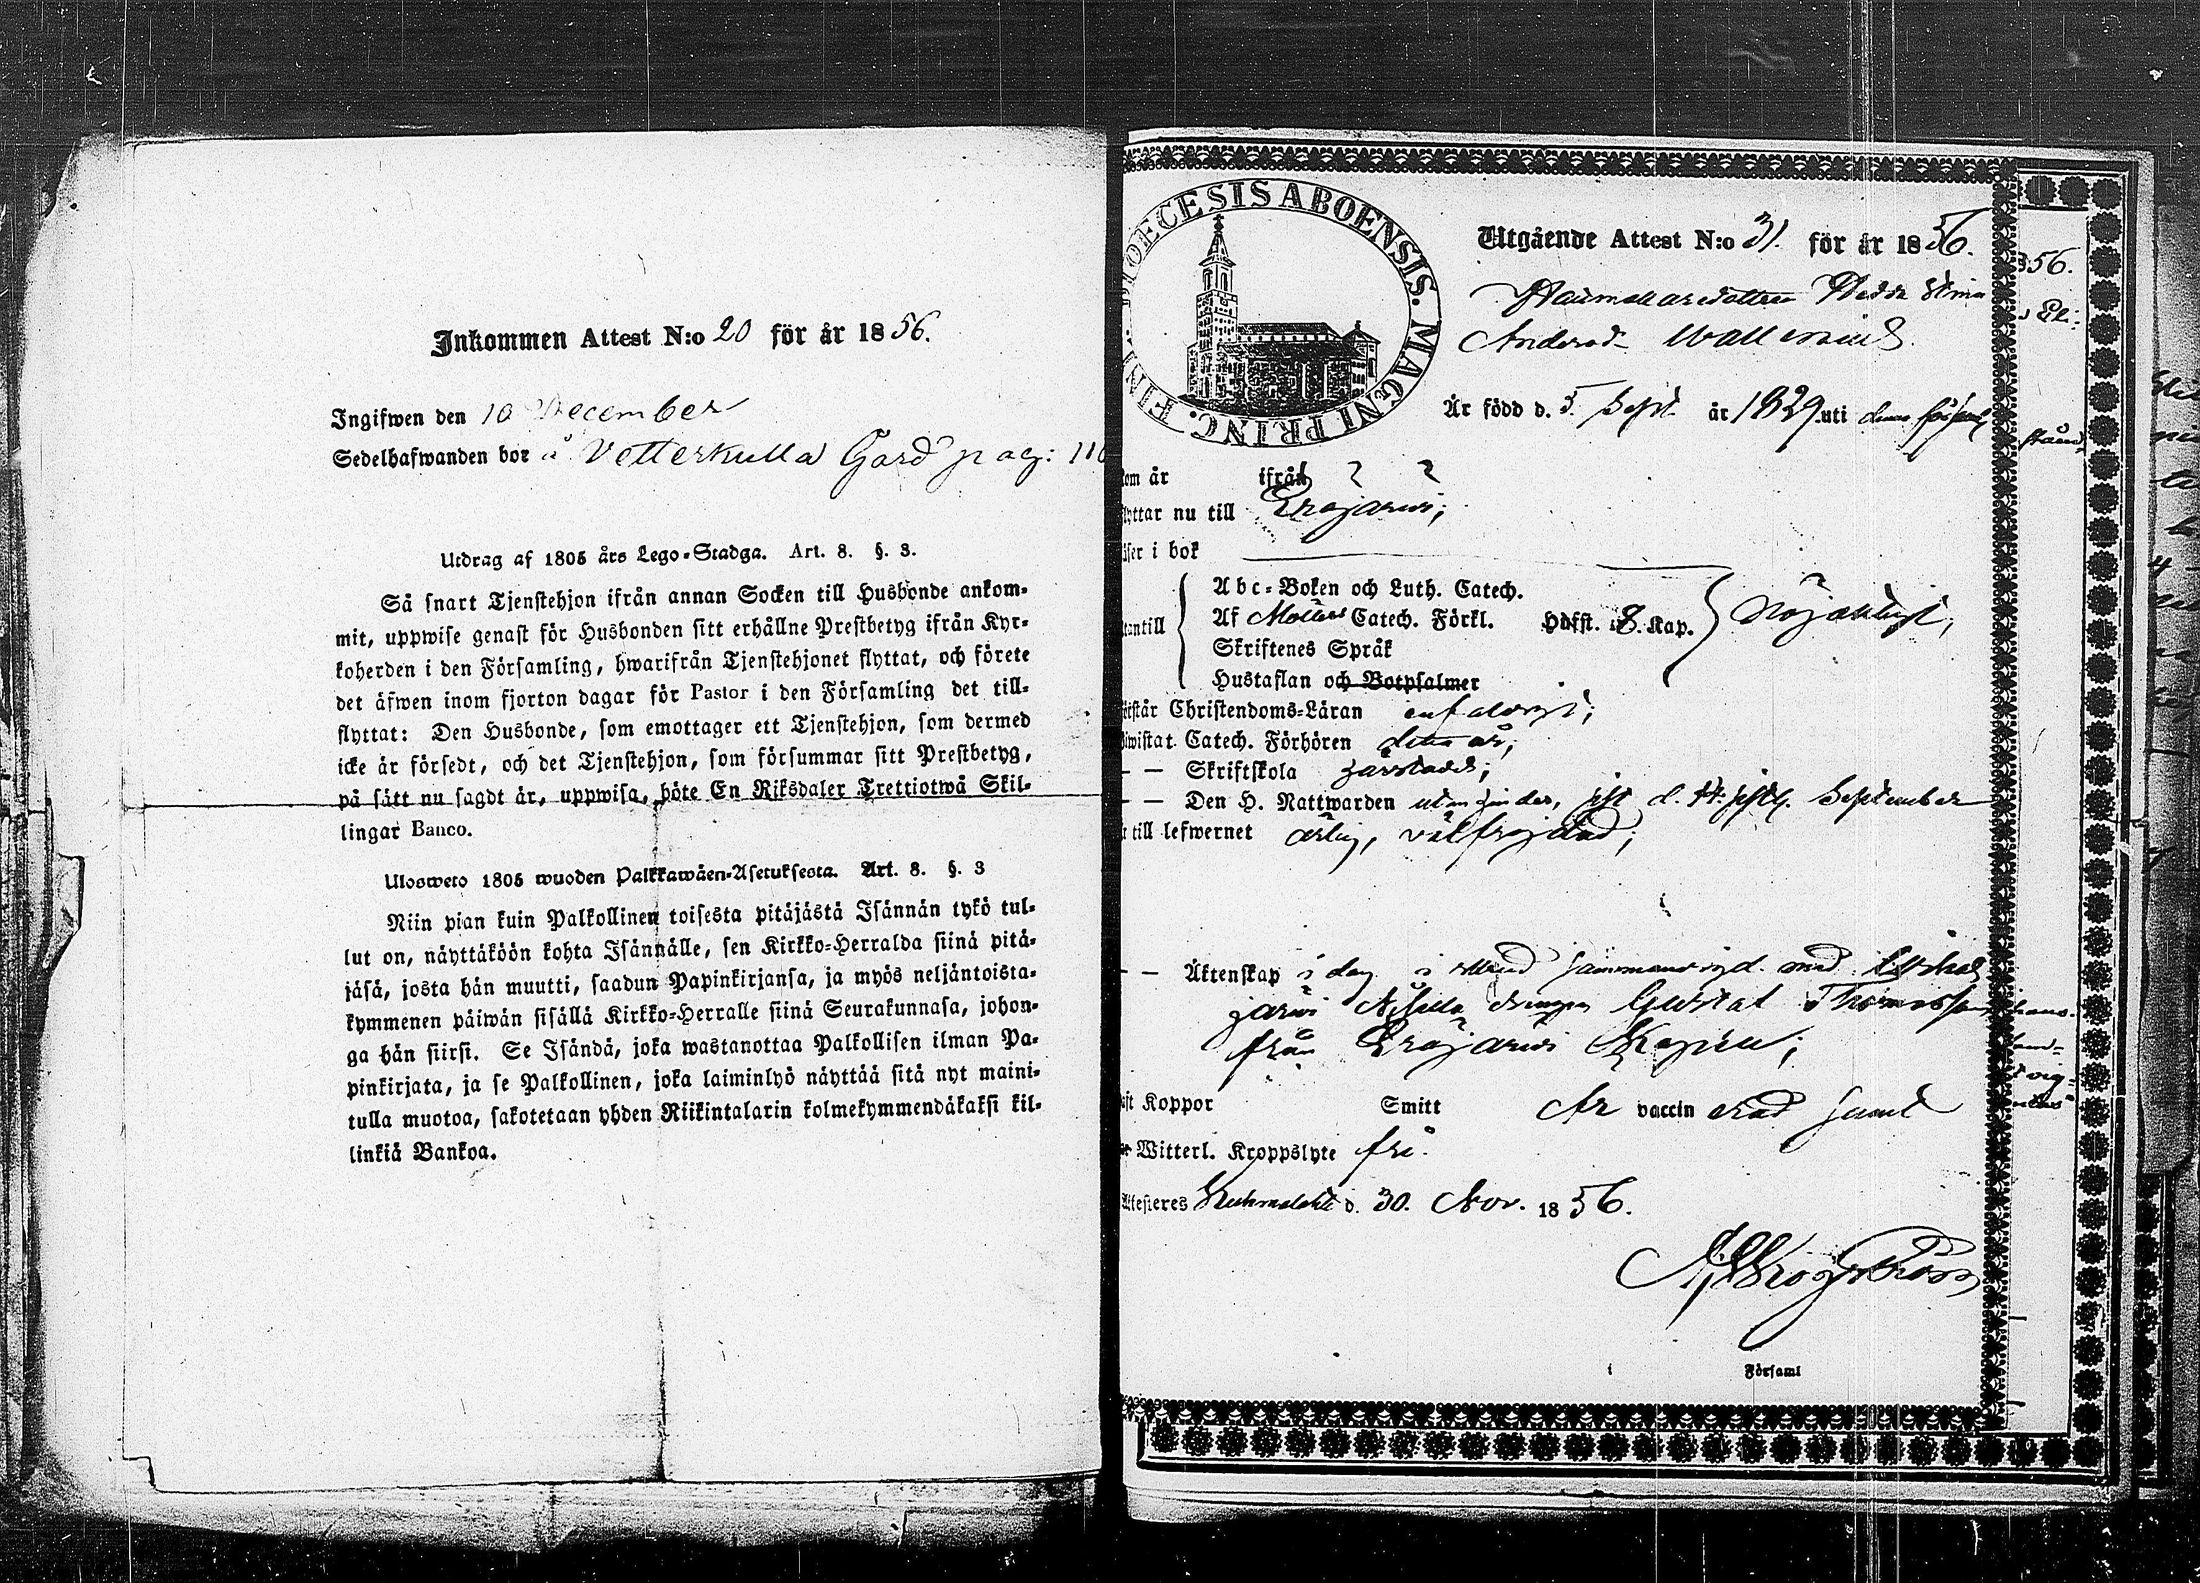 Inkommen Attest N:o 20 för år 1856.
Ingifwen den 10 December
Sedelhafwanden bor å Vetterkulla Gård pag: 110
Utdrag af 1805 års Lego-Stadga. Art. 8. §. 3.
Så snart Tjenstehjon ifrån annan Socken till Husbonde ankom-
mit, uppwise genast för Husbonden sitt erhållne Prestbetyg ifrån Kyr-
koherden i den Församling, hwarifrån Tjenstehjonet flyttat, och förete
det äfwen inom fjorton dagar för Pastor i den Församling det till-
flyttat: Den Husbonde, som emottager ett Tjenstehjon, som dermed
icke är försedt, och det Tjenstehjon, som försummar sitt Prestbetyg,
på sätt nu sagdt är, uppwisa, böte En Riksdaler Trettiotwå Skil-
lingar Banco.
Ulosweto 1805 wuoden Palkkawäen-Asetuksesta. Art. 8. §. 3
Niin pian kuin Palkollinen toisesta pitäjästä Isännän tykö tul-
lut on, näyttäköön kohta Isännälle, sen Kirkko-Herralda siinä pitä-
jäsä, josta hän muutti, saadun Papinkirjansa, ja myös neljäntoista-
kymmenen päiwän sisällä Kirkko-Herralle siinä Seurakunnasa, johon-
ga hän siirsi. Se Isändä, joka wastanottaa Palkollisen ilman Pa-
pinkirjata, ja se Palkollinen, joka laiminlyö näyttää sitä nyt maini-
tulla muotoa, sakotetaan yhden Riikintalarin kolmekymmendäkaksi kil-
linkiä Bankoa.
DIOECESIS ABOENSIS. MAGNI PRINC. FIN
Utgående Attest N:o 31. för år 1856.
Hedda Stina
Andersd. Wallenius.
Är född d. 5. Sept. år 1829 uti denna församl
om år ifrån
yttar nu till Erajärwi;
äser i bok
utantill
Abc-Boken och Luth. Catech.
Af Möllers Catech. Förkl. Hdfst. i 8. Kap. Nöjaktigt;
Skriftenes Språk
Hustaflan och Botpsalmer
örstår Christendoms-Läran enfaldigt;
iwistat Catech. Förhören detta år;
— — Skriftskola
— — Den H. Nattwarden sist d. September
till lefwernet ärlig, välfrejdad;
— — Äktenskap i dag med
järwi drängen Gustaf Thomasson
från Erajärwi
Koppor Smitt Är vaccin erad
Witterl. Kroppslyte fri.
Attesteres Kuhmalahti d. 30. Nov. 1856.
Församl
856.